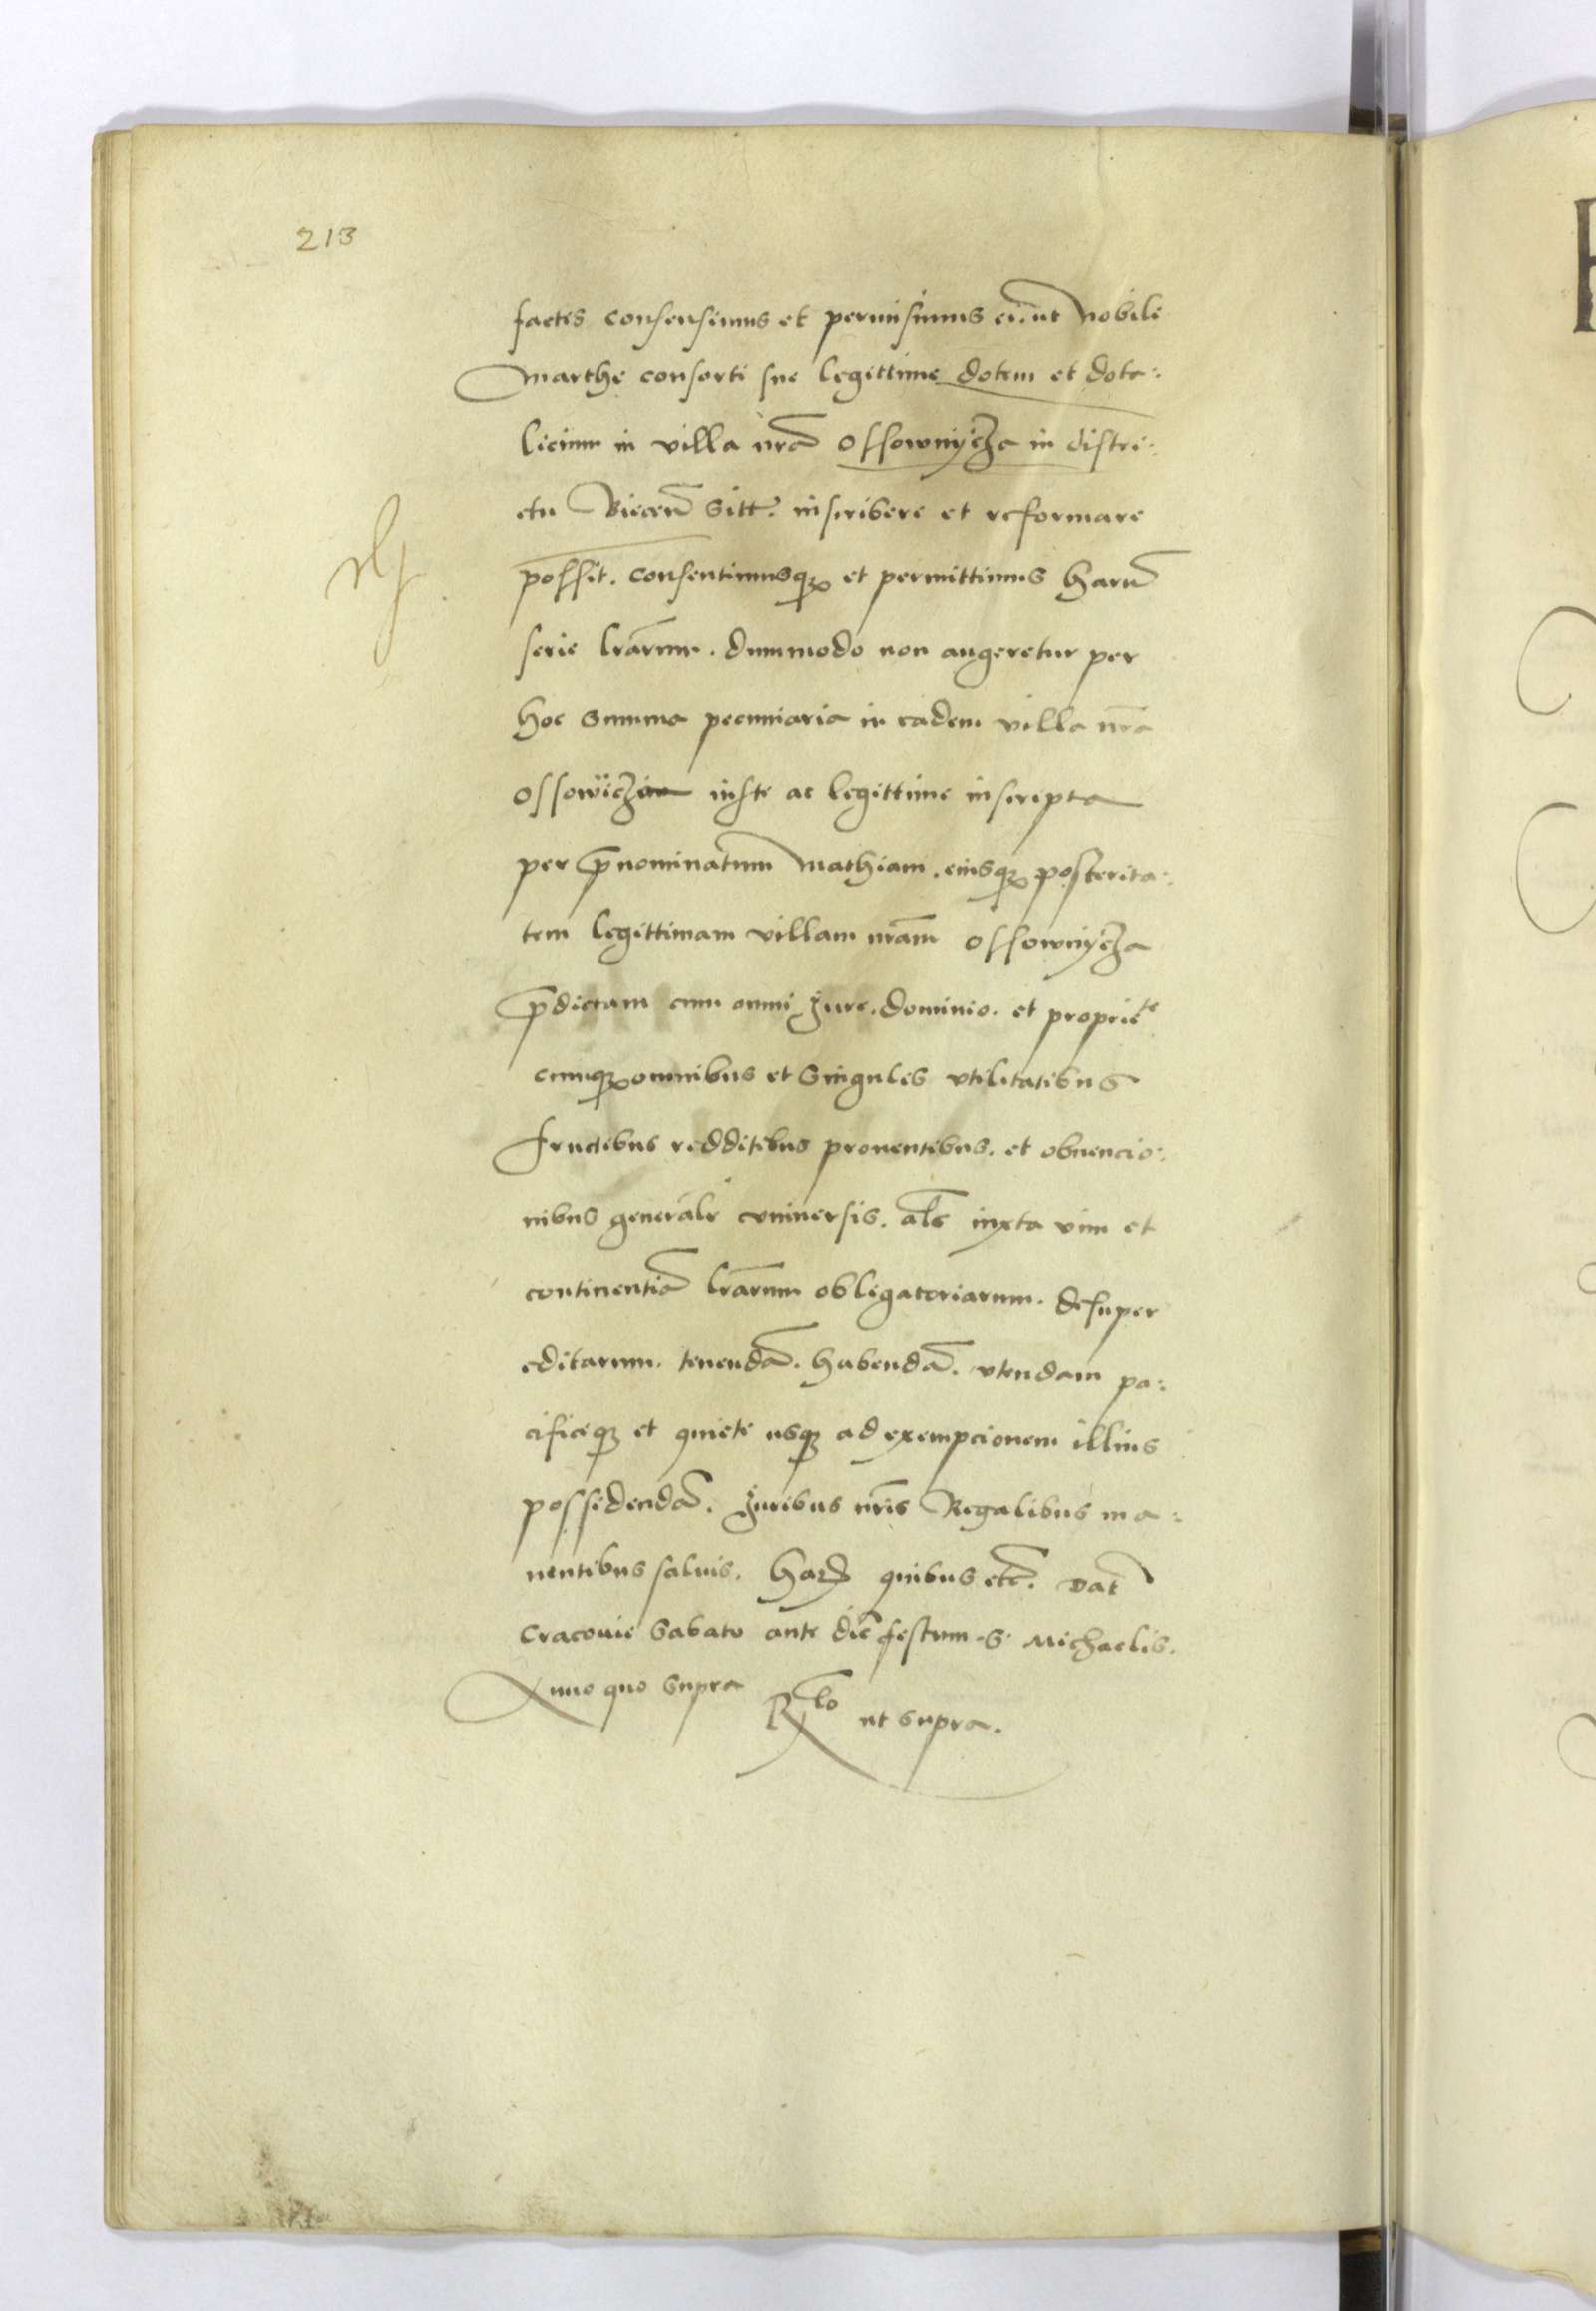 213
factis consensimus et permisimus ei. ut Nobili
Marthe consorti sue legittime dotem et dota:
licium in villa nrã Ossownycza in distri:
ctu Biecen̄ sitt. inscribere et reformare
possit. consentimusqȝ et permittimus harũ
serie lrãrum. dummodo non augeretur per
hoc summa pecuniaria in eadem villa nrã
iuste ac legittime inscripta
per p̄nominatum Mathiam. eiusqȝ posterita:
tem legittimam villam nrãm Ossownycza
p̄dictam cum omni Jure. dominio. et propriete
cumqȝ omnibus et singulis vtilitatibus
fructibus redditibus prouentibus. et obuencio:
nibus generalr vniuersis. als̄ iuxta vim et
continentiã lrãrum obligatoriarum. desuper
editarum. tenendã. habendã. vtendam pa:
cificeqȝ et quiete usqȝ ad exempcionem illius
possidendã. Juribus nrĩs Regalibus ma:
nentibus saluis. Harꝝ quibus etc̄. Dat̄
Cracouie Sabato ante diẽ festum S. Michaelis.
Anno quo supra
Rlo ut supra.